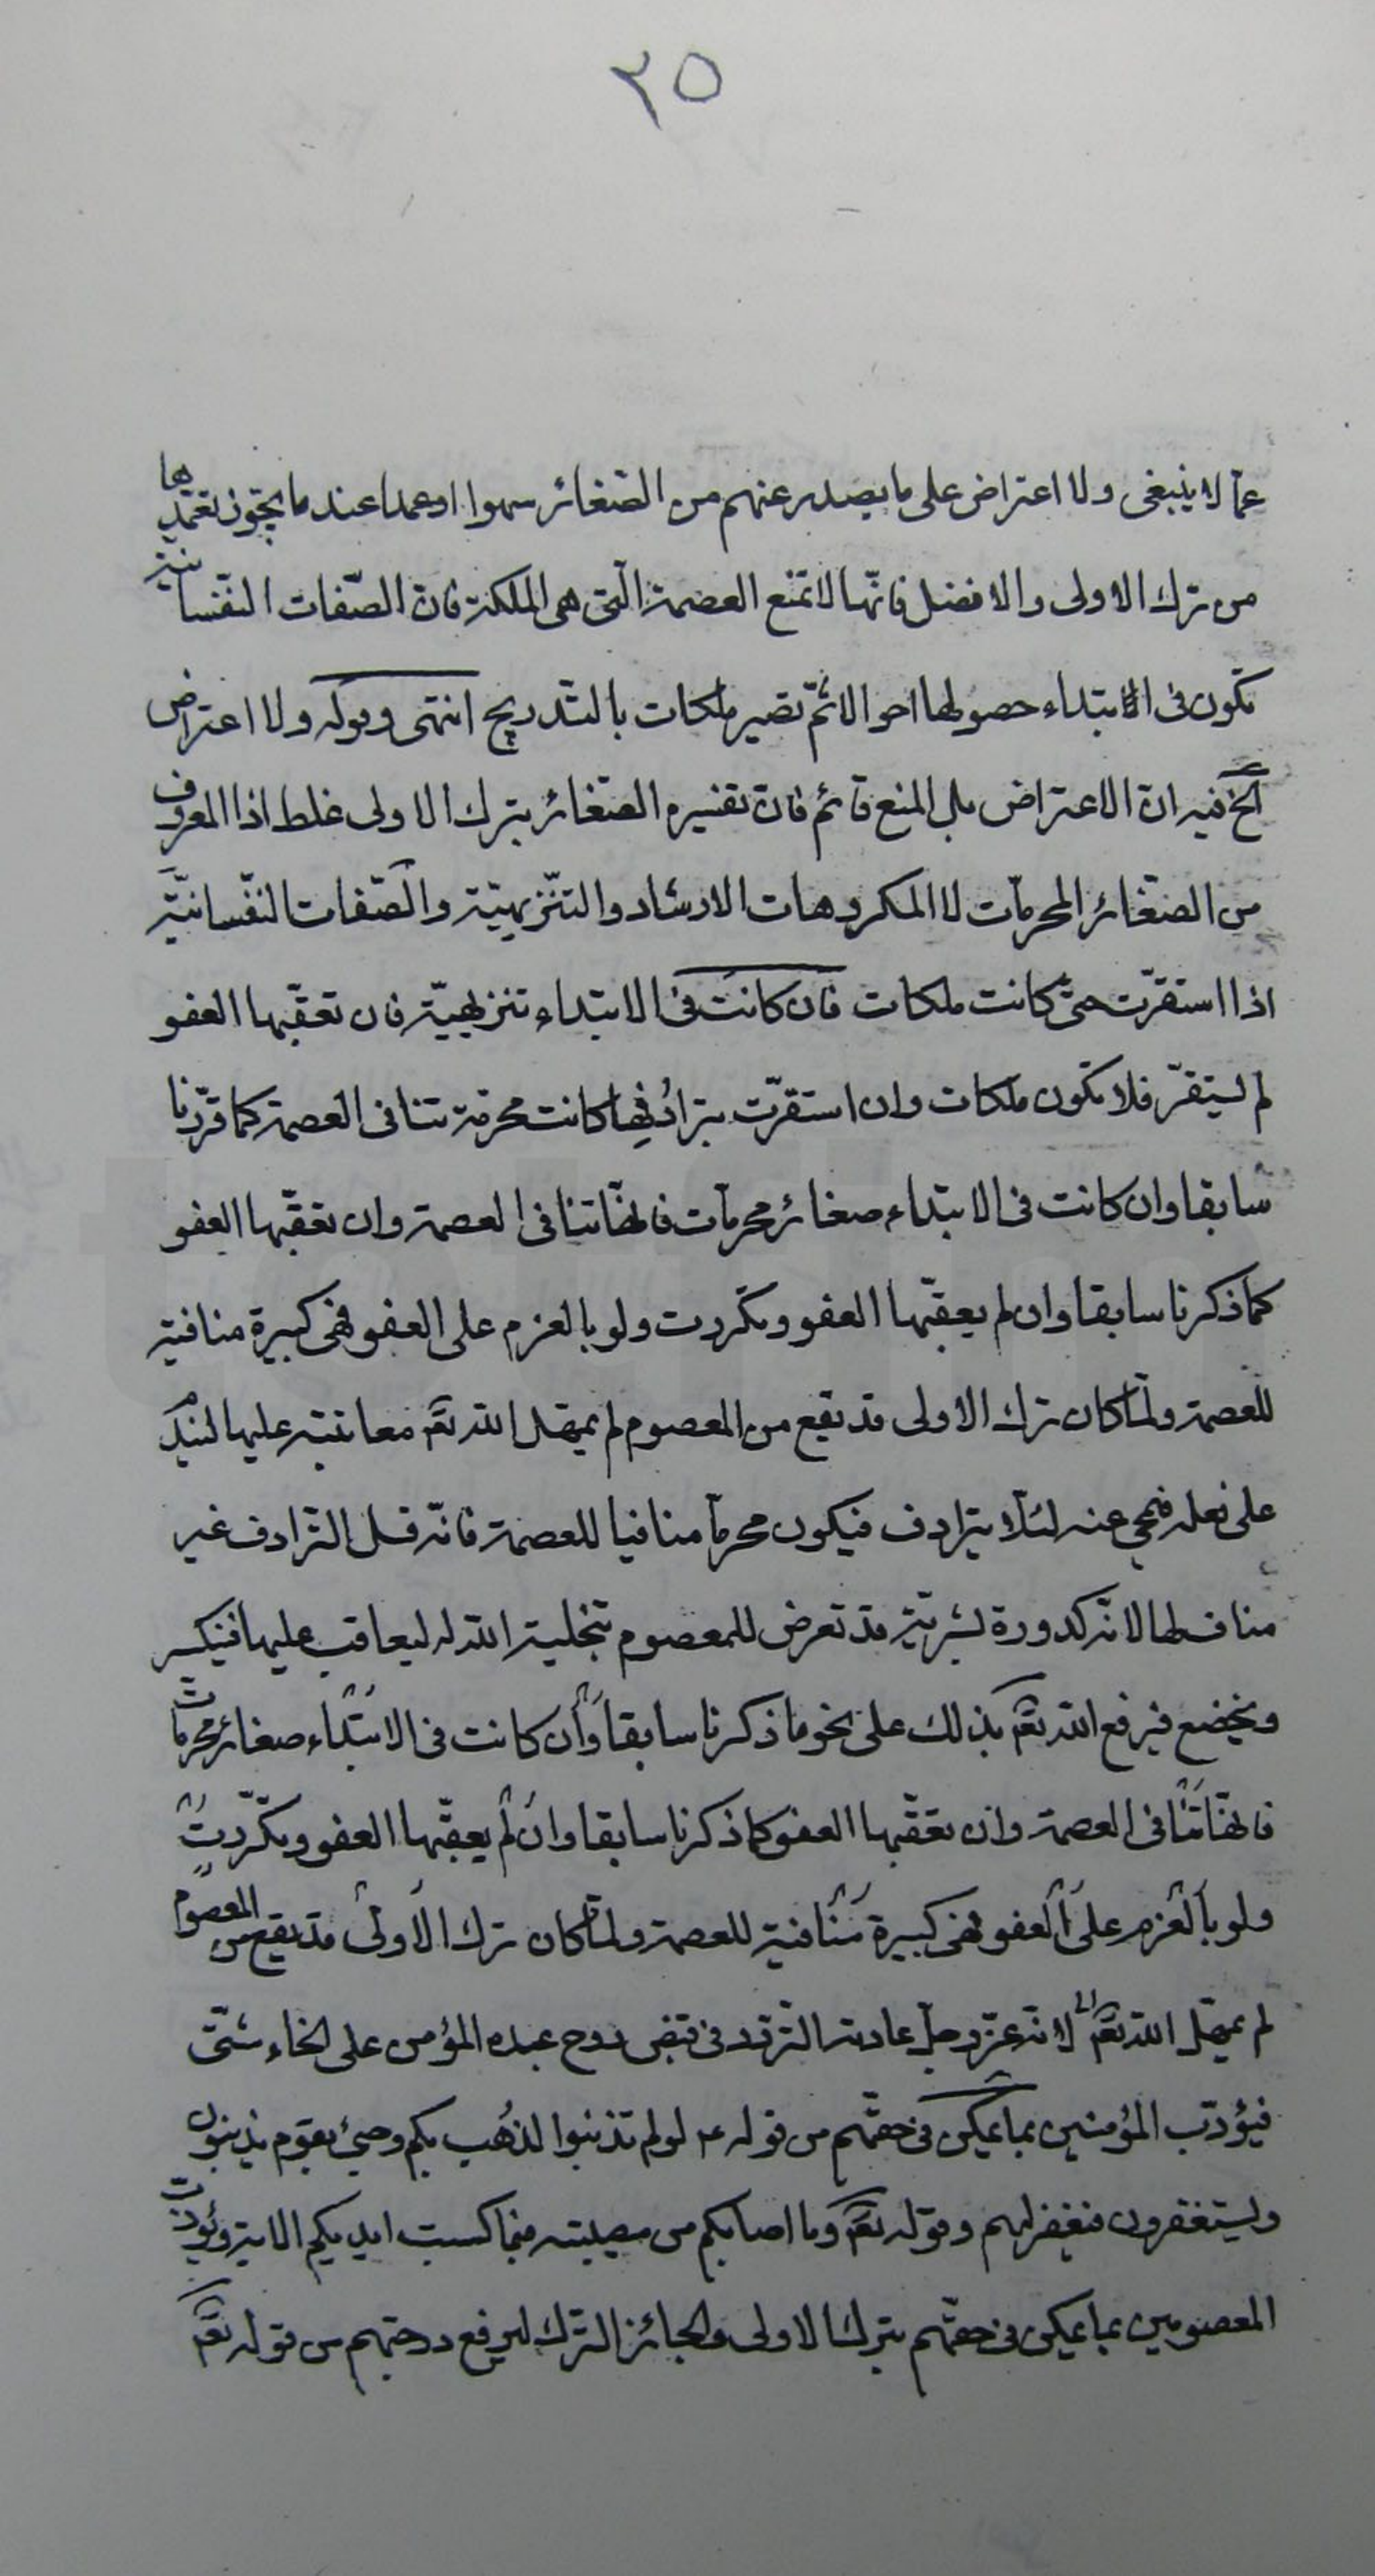 ٢٥
عما لا ينبغى ولا اعتراض على ما يصدر عنهم من الصّغائر سهوا او عمدا عند ما يجوز تعمّدها
من ترك الاولى والافضل فانّها لا تمنع العصمة الّتى هى الملكة فانّ الصّفات النّفسانيّة
تكون فى الابتداء حصولها احوالا ثمّ تصير ملكات بالتّدريج انتهى وقوله ولا اعتراض
الخ فيه انّ الاعتراض بل المنع قائم فانّ تفسيره الصّغائر بترك الاولى غلط اذا المعروف
من الصّغائر المحرمات لا المكروهات الارشاد والتّنزيهيّة والصّفات النّفسانيّة
اذا استقرّت حتى كانت ملكات فان كانت فى الابتداء تنزيهيّة فان تعقّبها العفو
لم يستقرّ فلا تكون ملكات وان استقرّت بترادفها كانت محرمة تنافى العصمة كما قرّرنا
سابقا وان كانت فى الابتداء صغائر محرمات فانّها تنافى العصمة وان تعقّبها العفو
كما ذكرنا سابقا وان لم يعقّبها العفو وتكررت ولو بالعزم على العفو فهى كبيرة منافية
للعصمة ولمّا كان ترك الاولى قد يقع من المعصوم لم يمهل الله تعا معاتبته عليها ليندم
على فعله فيمحى عنه لئلّا يترادف فيكون محرما منافيا للعصمة فانّه قبل التّرادف غير
مناف لها لانّه كدورة بشريّة قد تعرض للمعصوم بتخلية الله له ليعاقب عليها فينكسر
ويخضع فيرفع الله تعا بذلك على نحو ما ذكرنا سابقا وان كانت فى الابتداء صغائر محرمات
فانّها تنافى العصمة وان تعقّبها العفو كما ذكرنا سابقا وان لم يعقّبها العفو وتكرّرت
ولو بالعزم على العفو فهى كبيرة منافية للعصمة ولمّا كان ترك الاولى قد يقع من المعصوم
لم يمهل الله تعا لانّه عزّ وجلّ عادته التّردد فى قبض روح عبده المؤمن على انحاء شتّى
فيؤدّب المؤمنين بما يمكن فى حقّهم من قوله ع لو لم تذنبوا لذُهب بكم وجيئ بقوم يذنبون
ويستغفرون فيغفر لهم وقوله تعا وما اصابكم من مصيبة فبما كسبت ايديكم الاية ويؤدّب
المعصومين بما يمكن فى حقّهم بترك الاولى والجائز الترك ليرفع درجتهم من قوله تعا